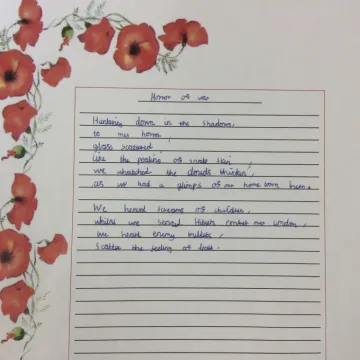 Horror of war
Hunkering down in the shadows,
to my horror,
glass scattered
like the of snake skin,
we whatched the clouds thicken,
as we had a glimps of our home town burn.
We heared screams of children,
whilst we served Hitlers our,
We heard enemy bullets,
Scatter the feeling of death.